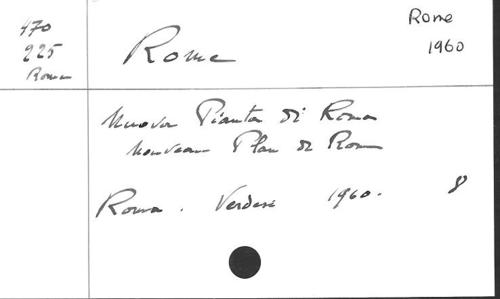 470
225
Roma
Rome
Rome
1960
Nuova Pianta di Roma
Nouveau Plan de Rome
Roma. Verdesi 1960. 8